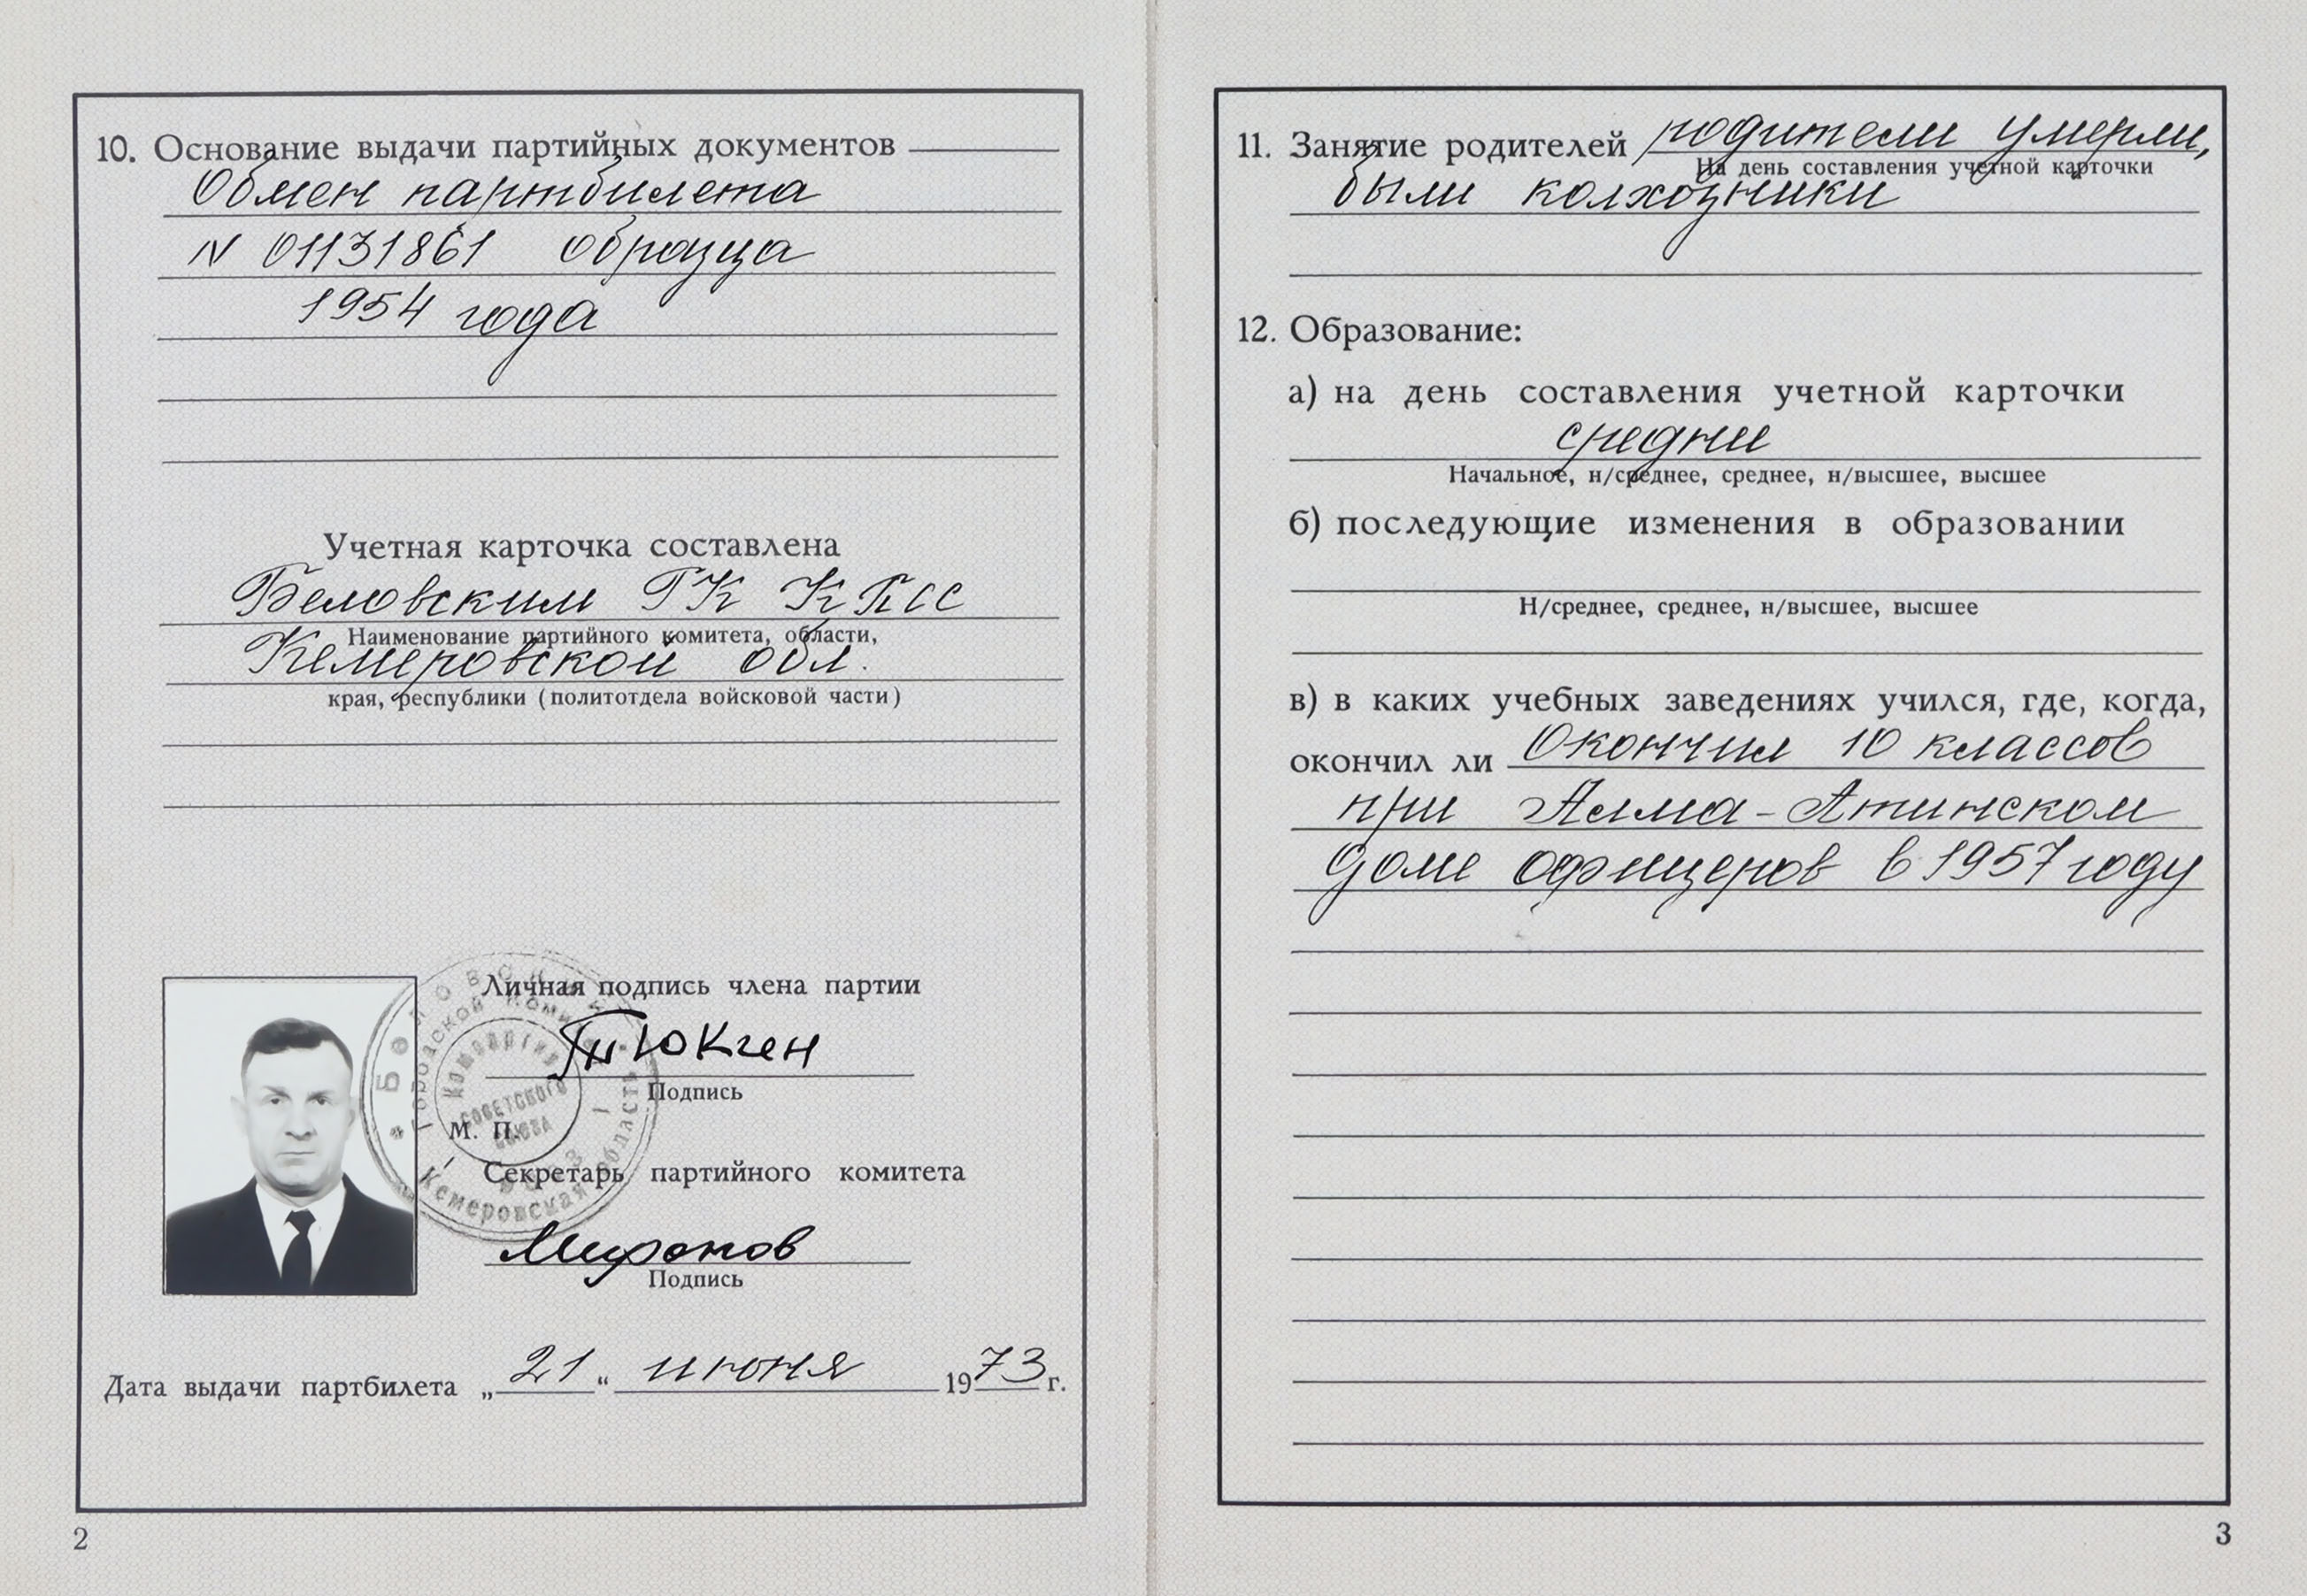 10. Основание выдачи партийных документов
Обмен партбилета
N 01131861 образца
1954 года
Учетная карточка составлена
Беловским ГК КПСС
Наименование партийного комитета, области,
Кемеровской обл.
края, республики (политотдела войсковой части)
Личная подпись члена партии
Подпись
М. П.
Секретарь партийного комитета
Миронов
Подпись
Дата выдачи партбилета „21“ июня 1973 г.
Городской
Компартия
Советского
Союза
Кемеровская область
2
11. Занятие родителей родители умерли,
На день составления учетной карточки
были колхозники
12. Образование:
а) на день составления учетной карточки
средни
Начальное, н/среднее, среднее, н/высшее, высшее
б) последующие изменения в образовании
Н/среднее, среднее, н/высшее, высшее
в) в каких учебных заведениях учился, где, когда,
окончил ли Окончил 10 классов
при Алма-Атинском
доме офицеров в 1957 году
3